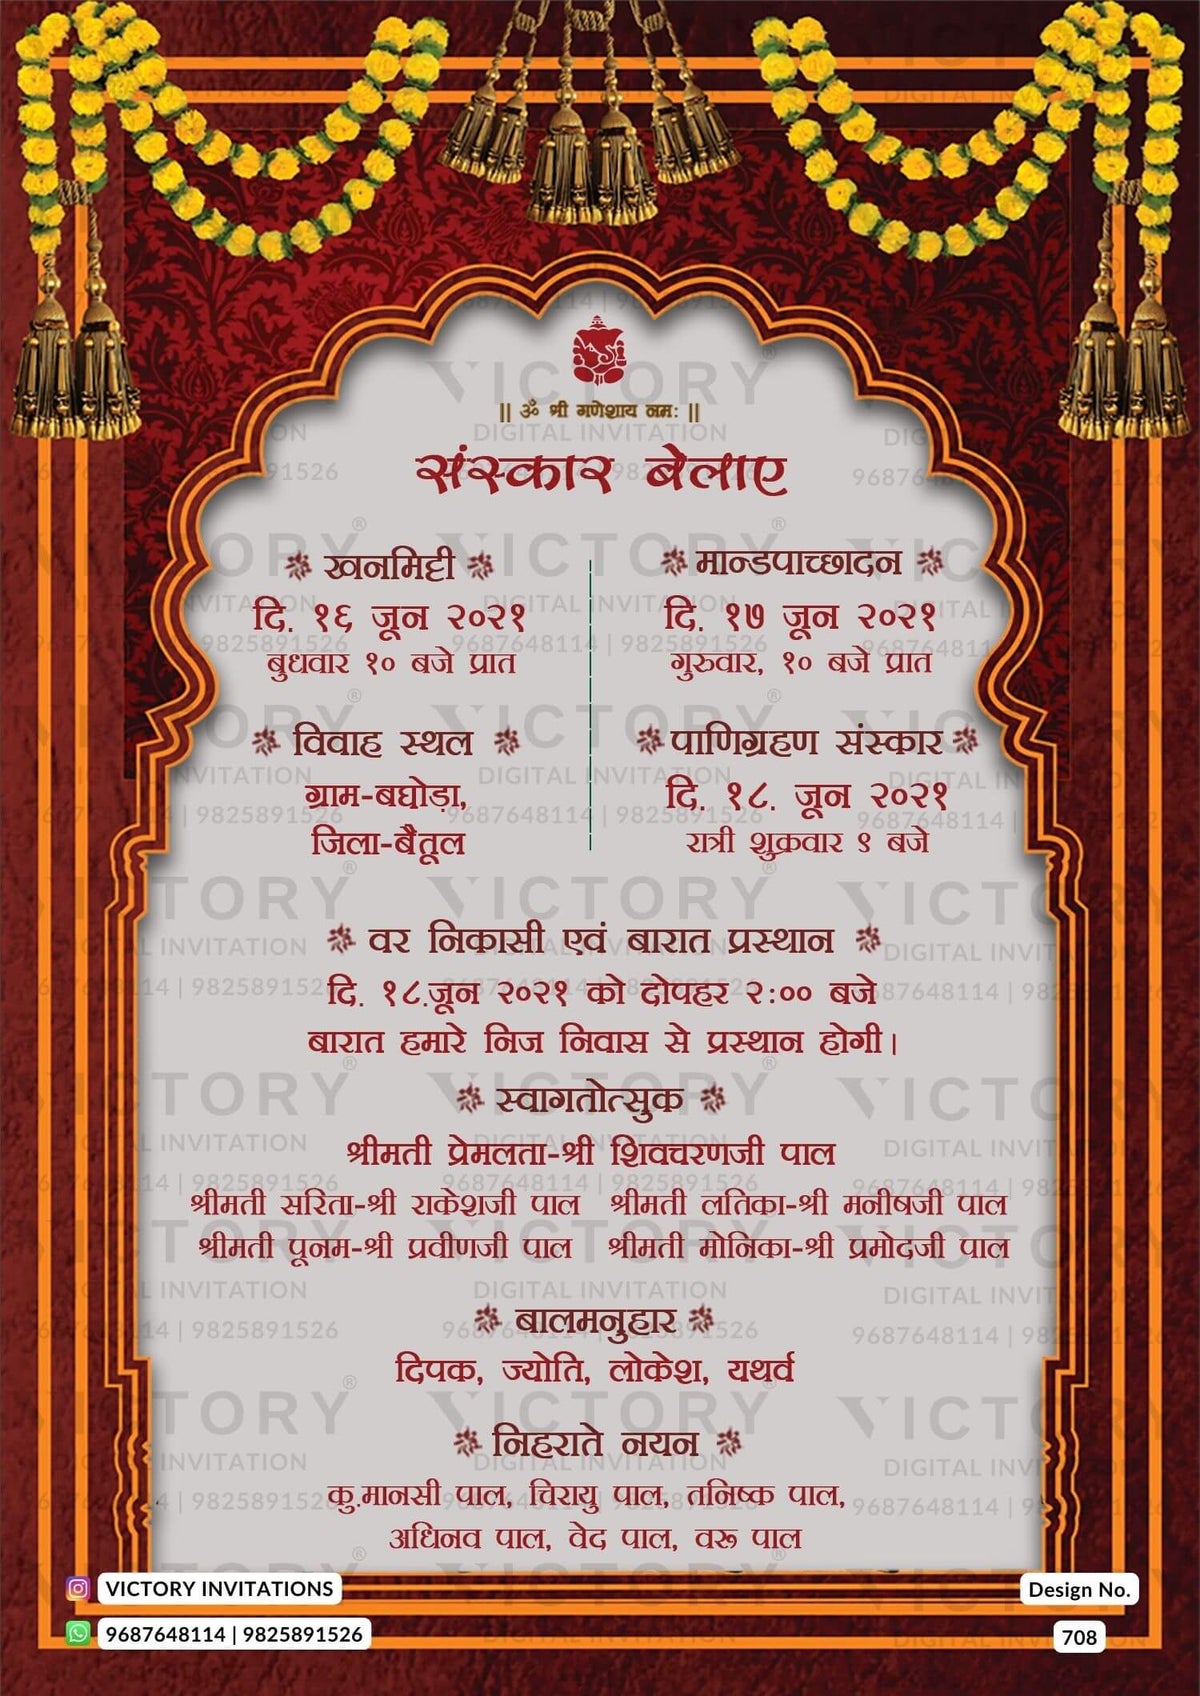 || ॐ श्री गणेशाय नमः ||
संस्कार बेलाए
खनमिट्टी
दि. १६ जून २०२१
बुधवार १० बजे प्रात
मान्डपाच्छादन
दि. १७ जून २०२१
गुरुवार, १० बजे प्रात
विवाह स्थल
ग्राम-बघोड़ा,
जिला-बैतूल
पाणिग्रहण संस्कार
दि. १८. जून २०२१
रात्री शुक्रवार ९ बजे
वर निकासी एवं बारात प्रस्थान
दि. १८.जून २०२१ को दोपहर २:०० बजे
बारात हमारे निज निवास से प्रस्थान होगी।
स्वागतोत्सुक
श्रीमती प्रेमलता-श्री शिवचरणजी पाल
श्रीमती सरिता-श्री राकेशजी पाल श्रीमती लतिका-श्री मनीषजी पाल
श्रीमती पूनम-श्री प्रवीणजी पाल श्रीमती मोनिका-श्री प्रमोदजी पाल
बालमनुहार
दिपक, ज्योति, लोकेश, यथर्व
निहराते नयन
कु.मानसी पाल, चिरायु पाल, तनिष्क पाल,
अधिनव पाल, वेद पाल, वरू पाल
VICTORY INVITATIONS
9687648114 | 9825891526
Design No.
708
VICTORY
DIGITAL INVITATION
9687648114 | 9825891526